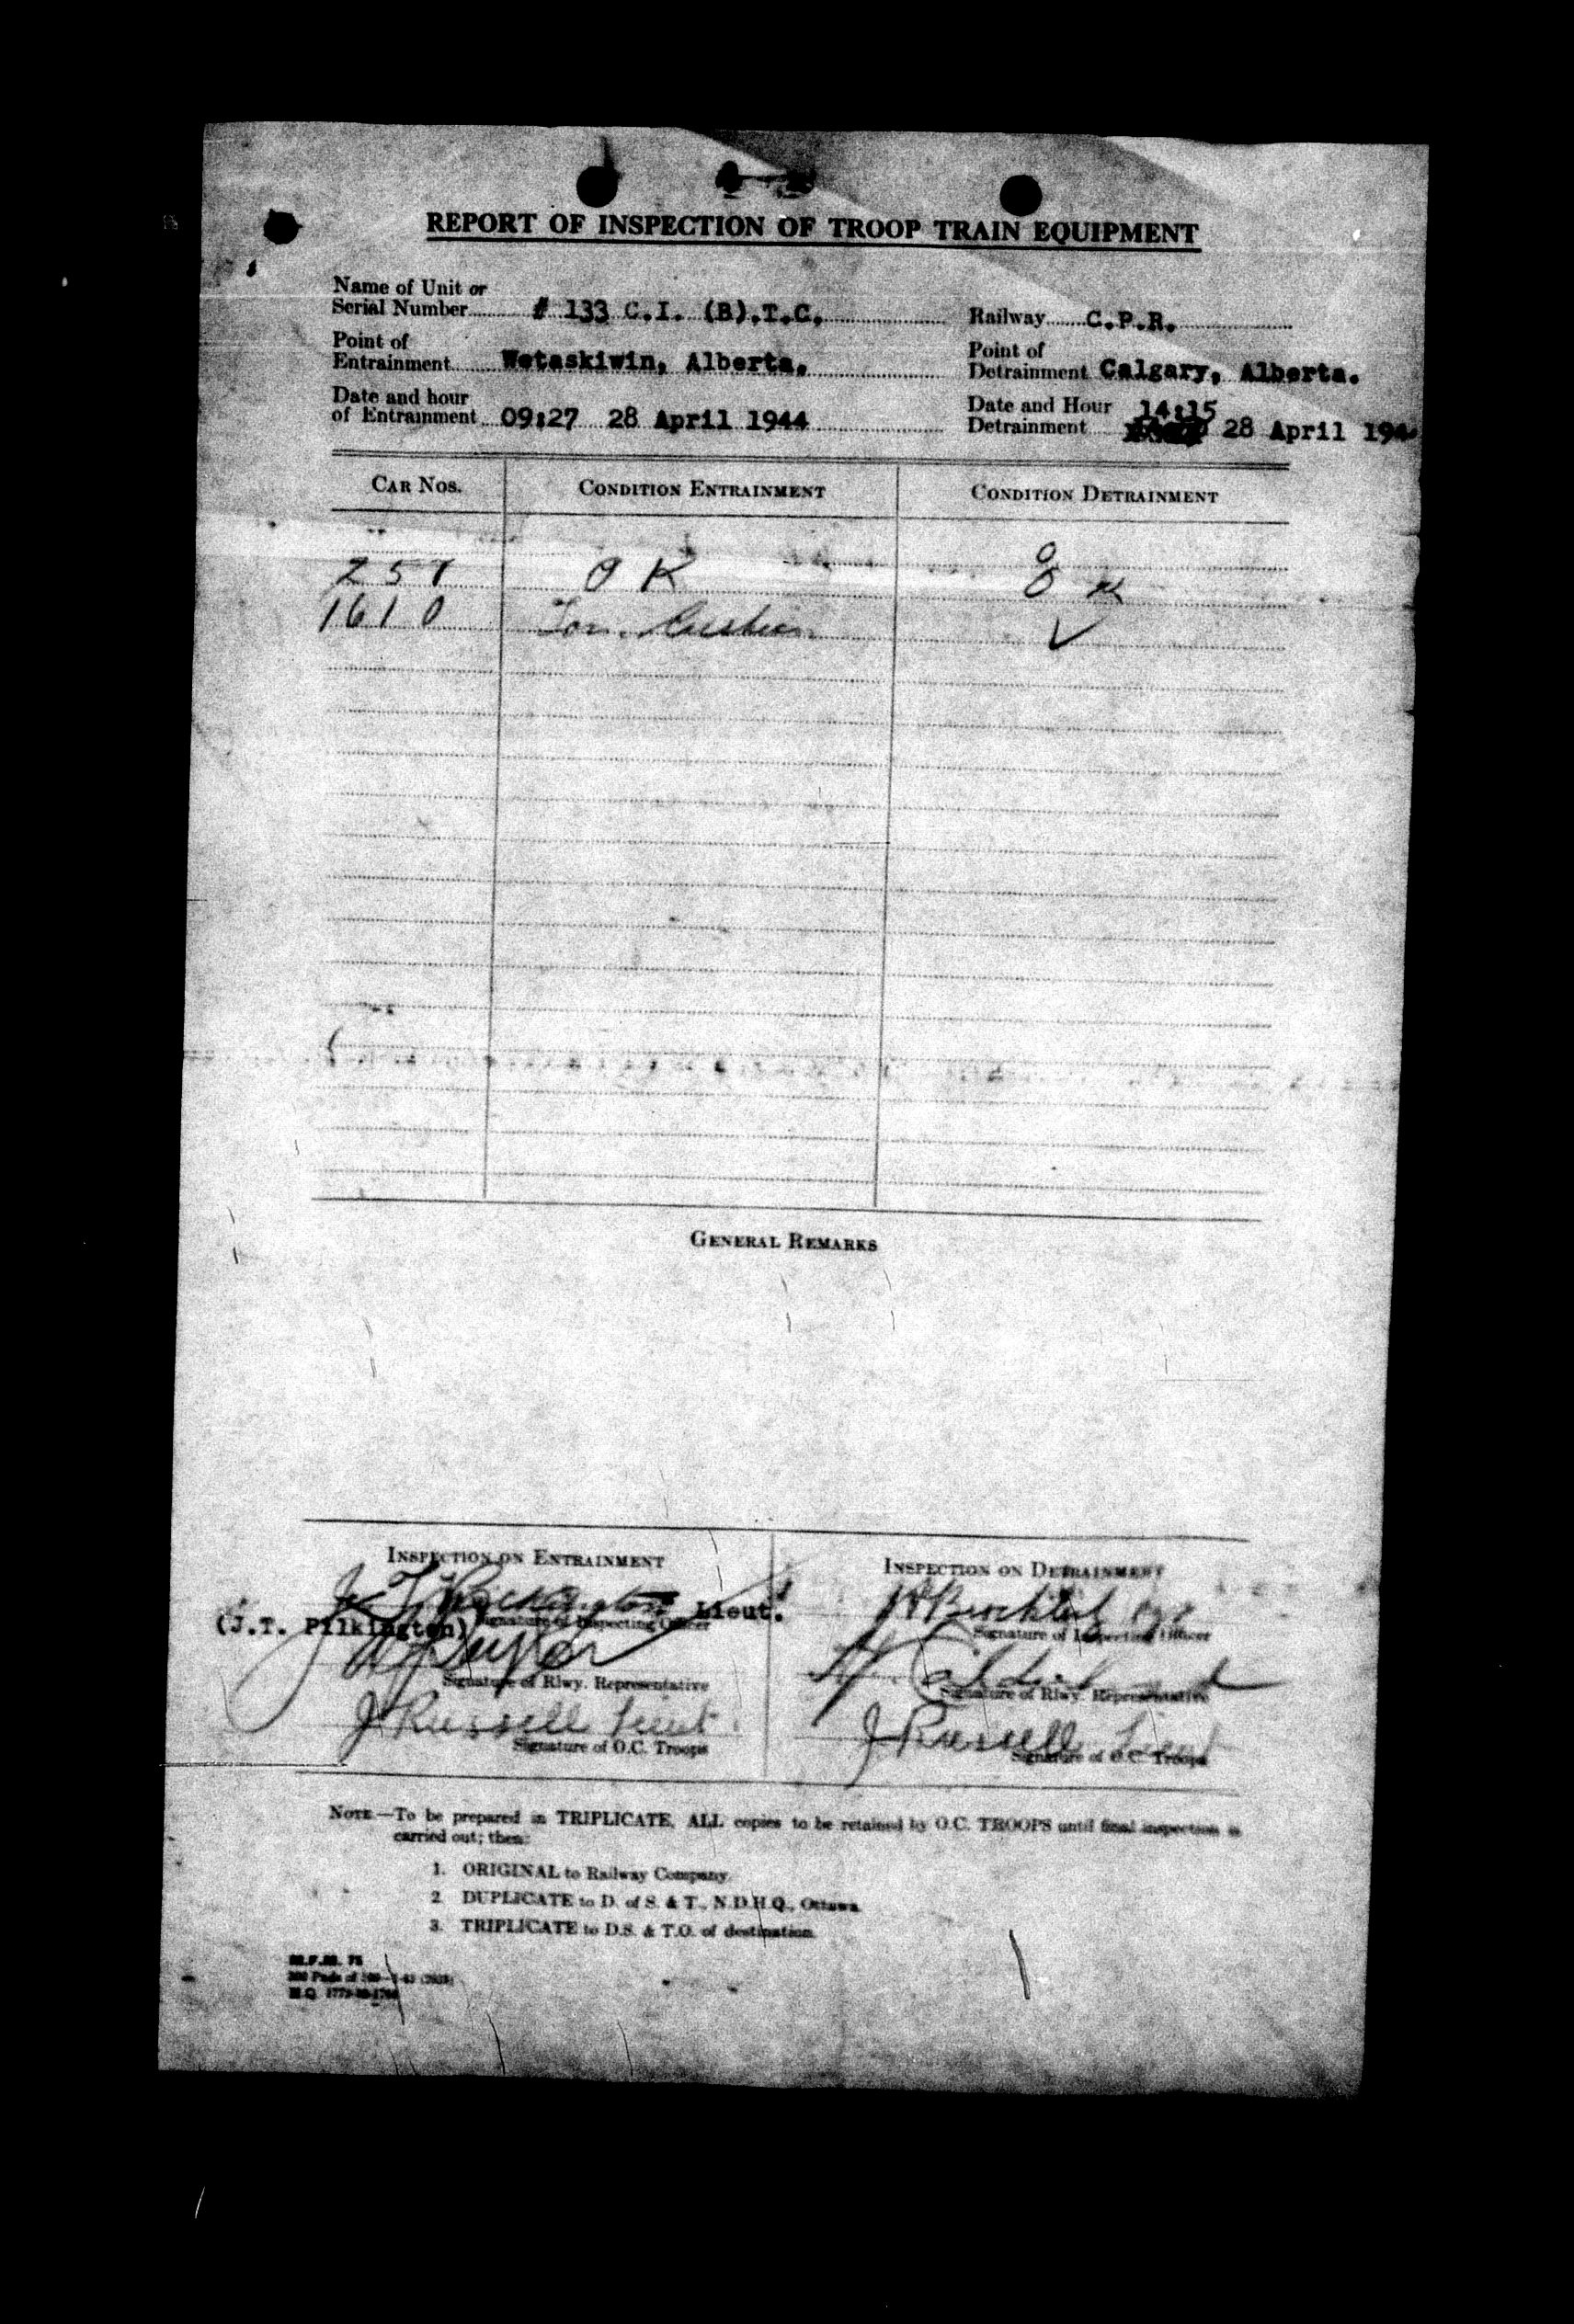 REPORT OF INSPECTION OF TROOP TRAIN EQUIPMENT
Name of Unit or
Serial Number # 133 C.I. (B).T.C.
Railway C.P.R.
Point of
Entrainment Wetaskiwin, Alberta.
Point of
Detrainment Calgary, Alberta.
Date and hour
of Entrainment 09:27 28 April 1944
Date and Hour 14:15
Detrainment 28 April 194
CAR NOS. CONDITION ENTRAINMENT CONDITION DETRAINMENT
OK
1610 Cushion ✓
GENERAL REMARKS
INSPECTION ON ENTRAINMENT INSPECTION ON DETRAINMENT
J. T. Pilkington Lieut.
(J.T. Pilkington) Signature of Inspecting Officer
Signature of Inspecting Officer
Signature of Rlwy. Representative
Signature of Rlwy. Representative
J Russell Lieut.
Signature of O.C. Troops
J Russell Lieut
Signature of O.C. Troops
NOTE—To be prepared in TRIPLICATE, ALL copies to be retained by O.C. TROOPS until final inspection is
carried out; then:
1. ORIGINAL to Railway Company.
2. DUPLICATE to D. of S. & T., N.D.H.Q., Ottawa.
3. TRIPLICATE to D.S. & T.O. of destination.
M.F.M. 75
H.Q.